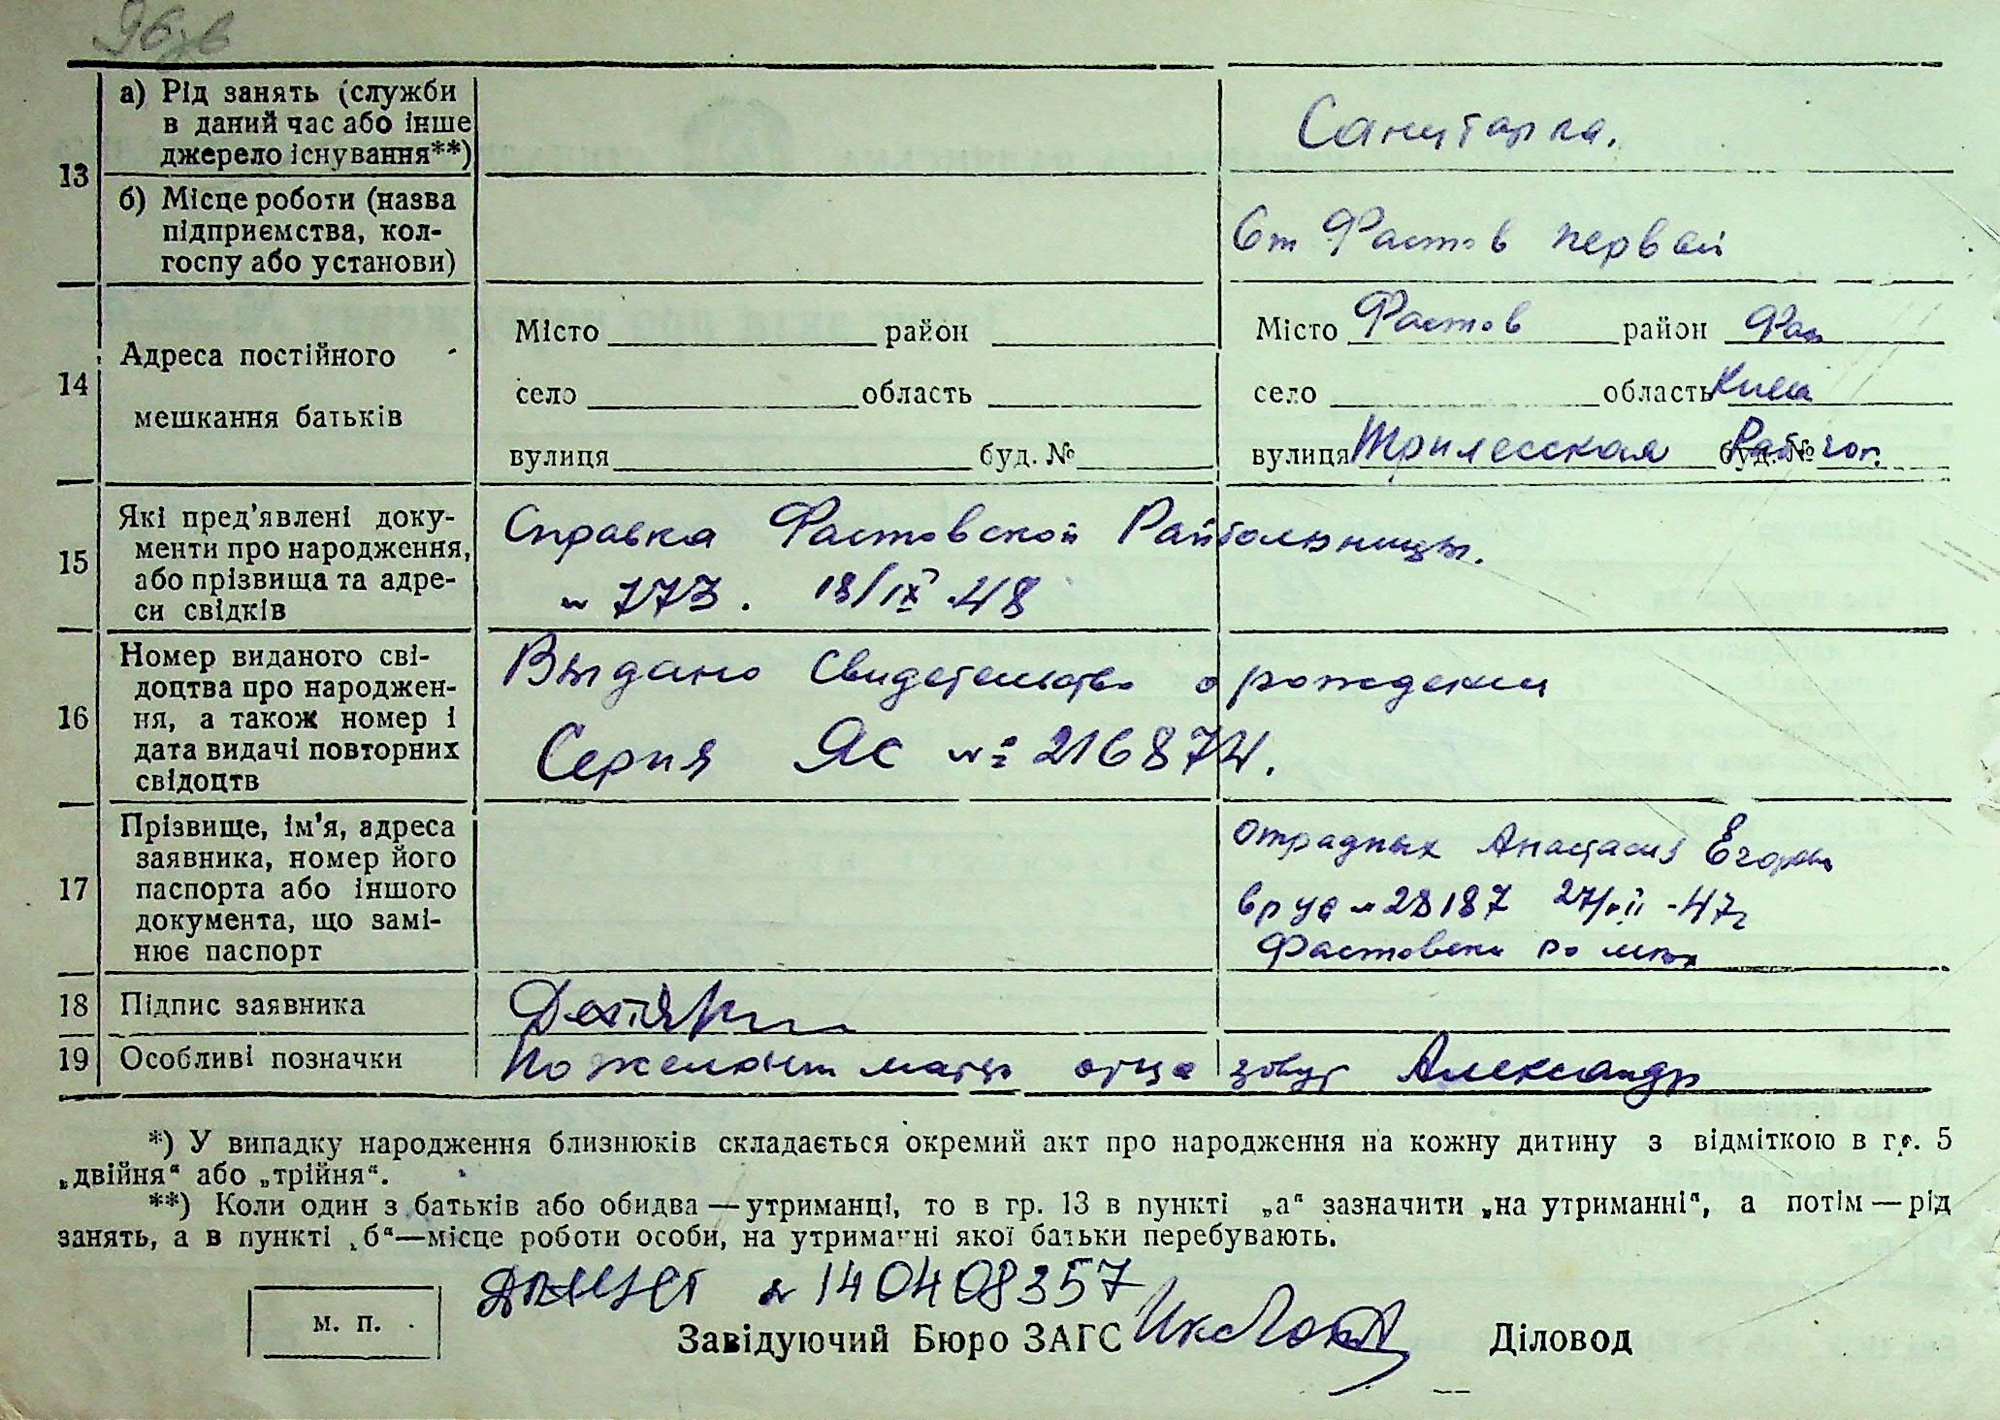 13
а) Рід занять (служби
в даний час або інше
джерело існування**)
Санитарка.
б) Місце роботи (назва
підприємства, кол-
госпу або установи)
Ст Фастов первый
14
Адреса постійного
мешкання батьків
Місто район
село область
вулиця буд. №
Місто Фастов район Фас
село область Киев
вулиця Трилесская буд. №
15
Які пред'явлені доку-
менти про народження,
або прізвища та адре-
си свідків
Справка Фастовской Райбольницы.
№ 773. 18/IX 48
16
Номер виданого сві-
доцтва про народжен-
ня, а також номер і
дата видачі повторних
свідоцтв
Выдано Свидетельство о рождении
Серия ЯС № 216874.
17
Прізвище, ім'я, адреса
заявника, номер його
паспорта або іншого
документа, що замі-
нює паспорт
Отрадных Анастасия Егоровн
№ 28187 -47г
18 Підпис заявника
19 Особливі позначки
По желанию матери отца зовут Александр
*) У випадку народження близнюків складається окремий акт про народження на кожну дитину з відміткою в гр. 5
„двійня“ або „трійня“.
**) Коли один з батьків або обидва — утриманці, то в гр. 13 в пункті „а“ зазначити „на утриманні“, а потім — рід
занять, а в пункті „б“—місце роботи особи, на утриманні якої батьки перебувають.
№ 140408357
м. п.
Завідуючий Бюро ЗАГС
Діловод